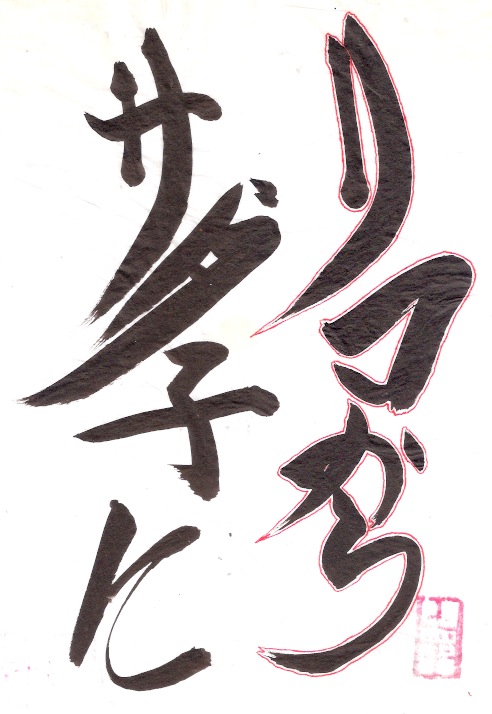 リコから
サダ子に